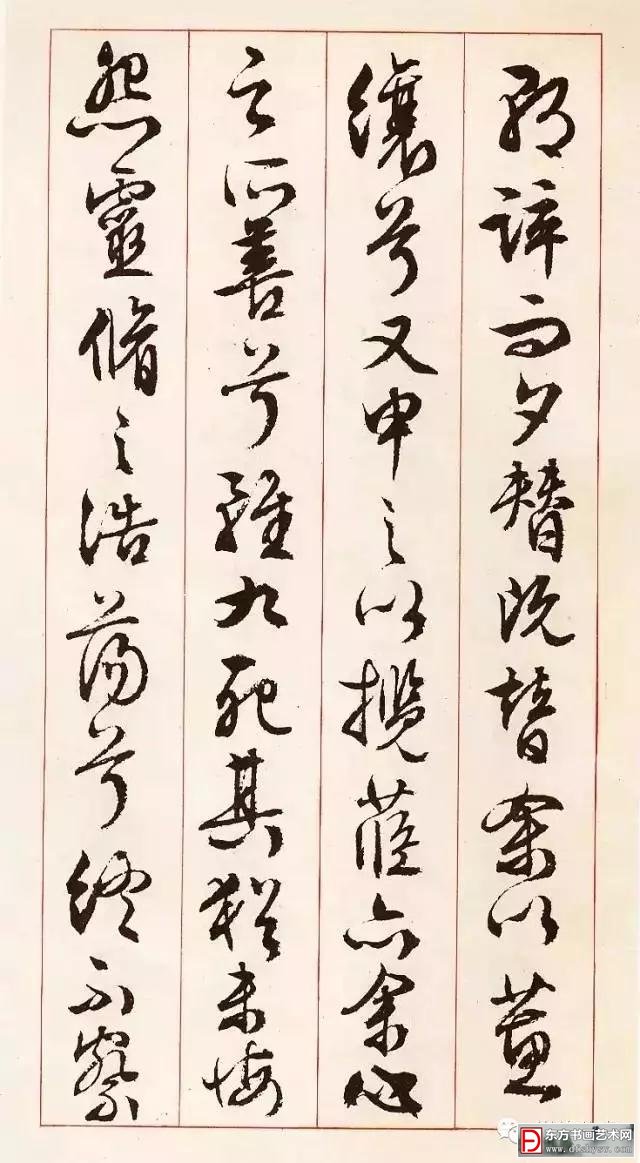 朝誶而夕替既替余以蕙
纕兮又申之以揽茝亦余心
之所善兮雖九死其猶未悔
怨靈脩之浩蕩兮终不察
东方书画艺术网